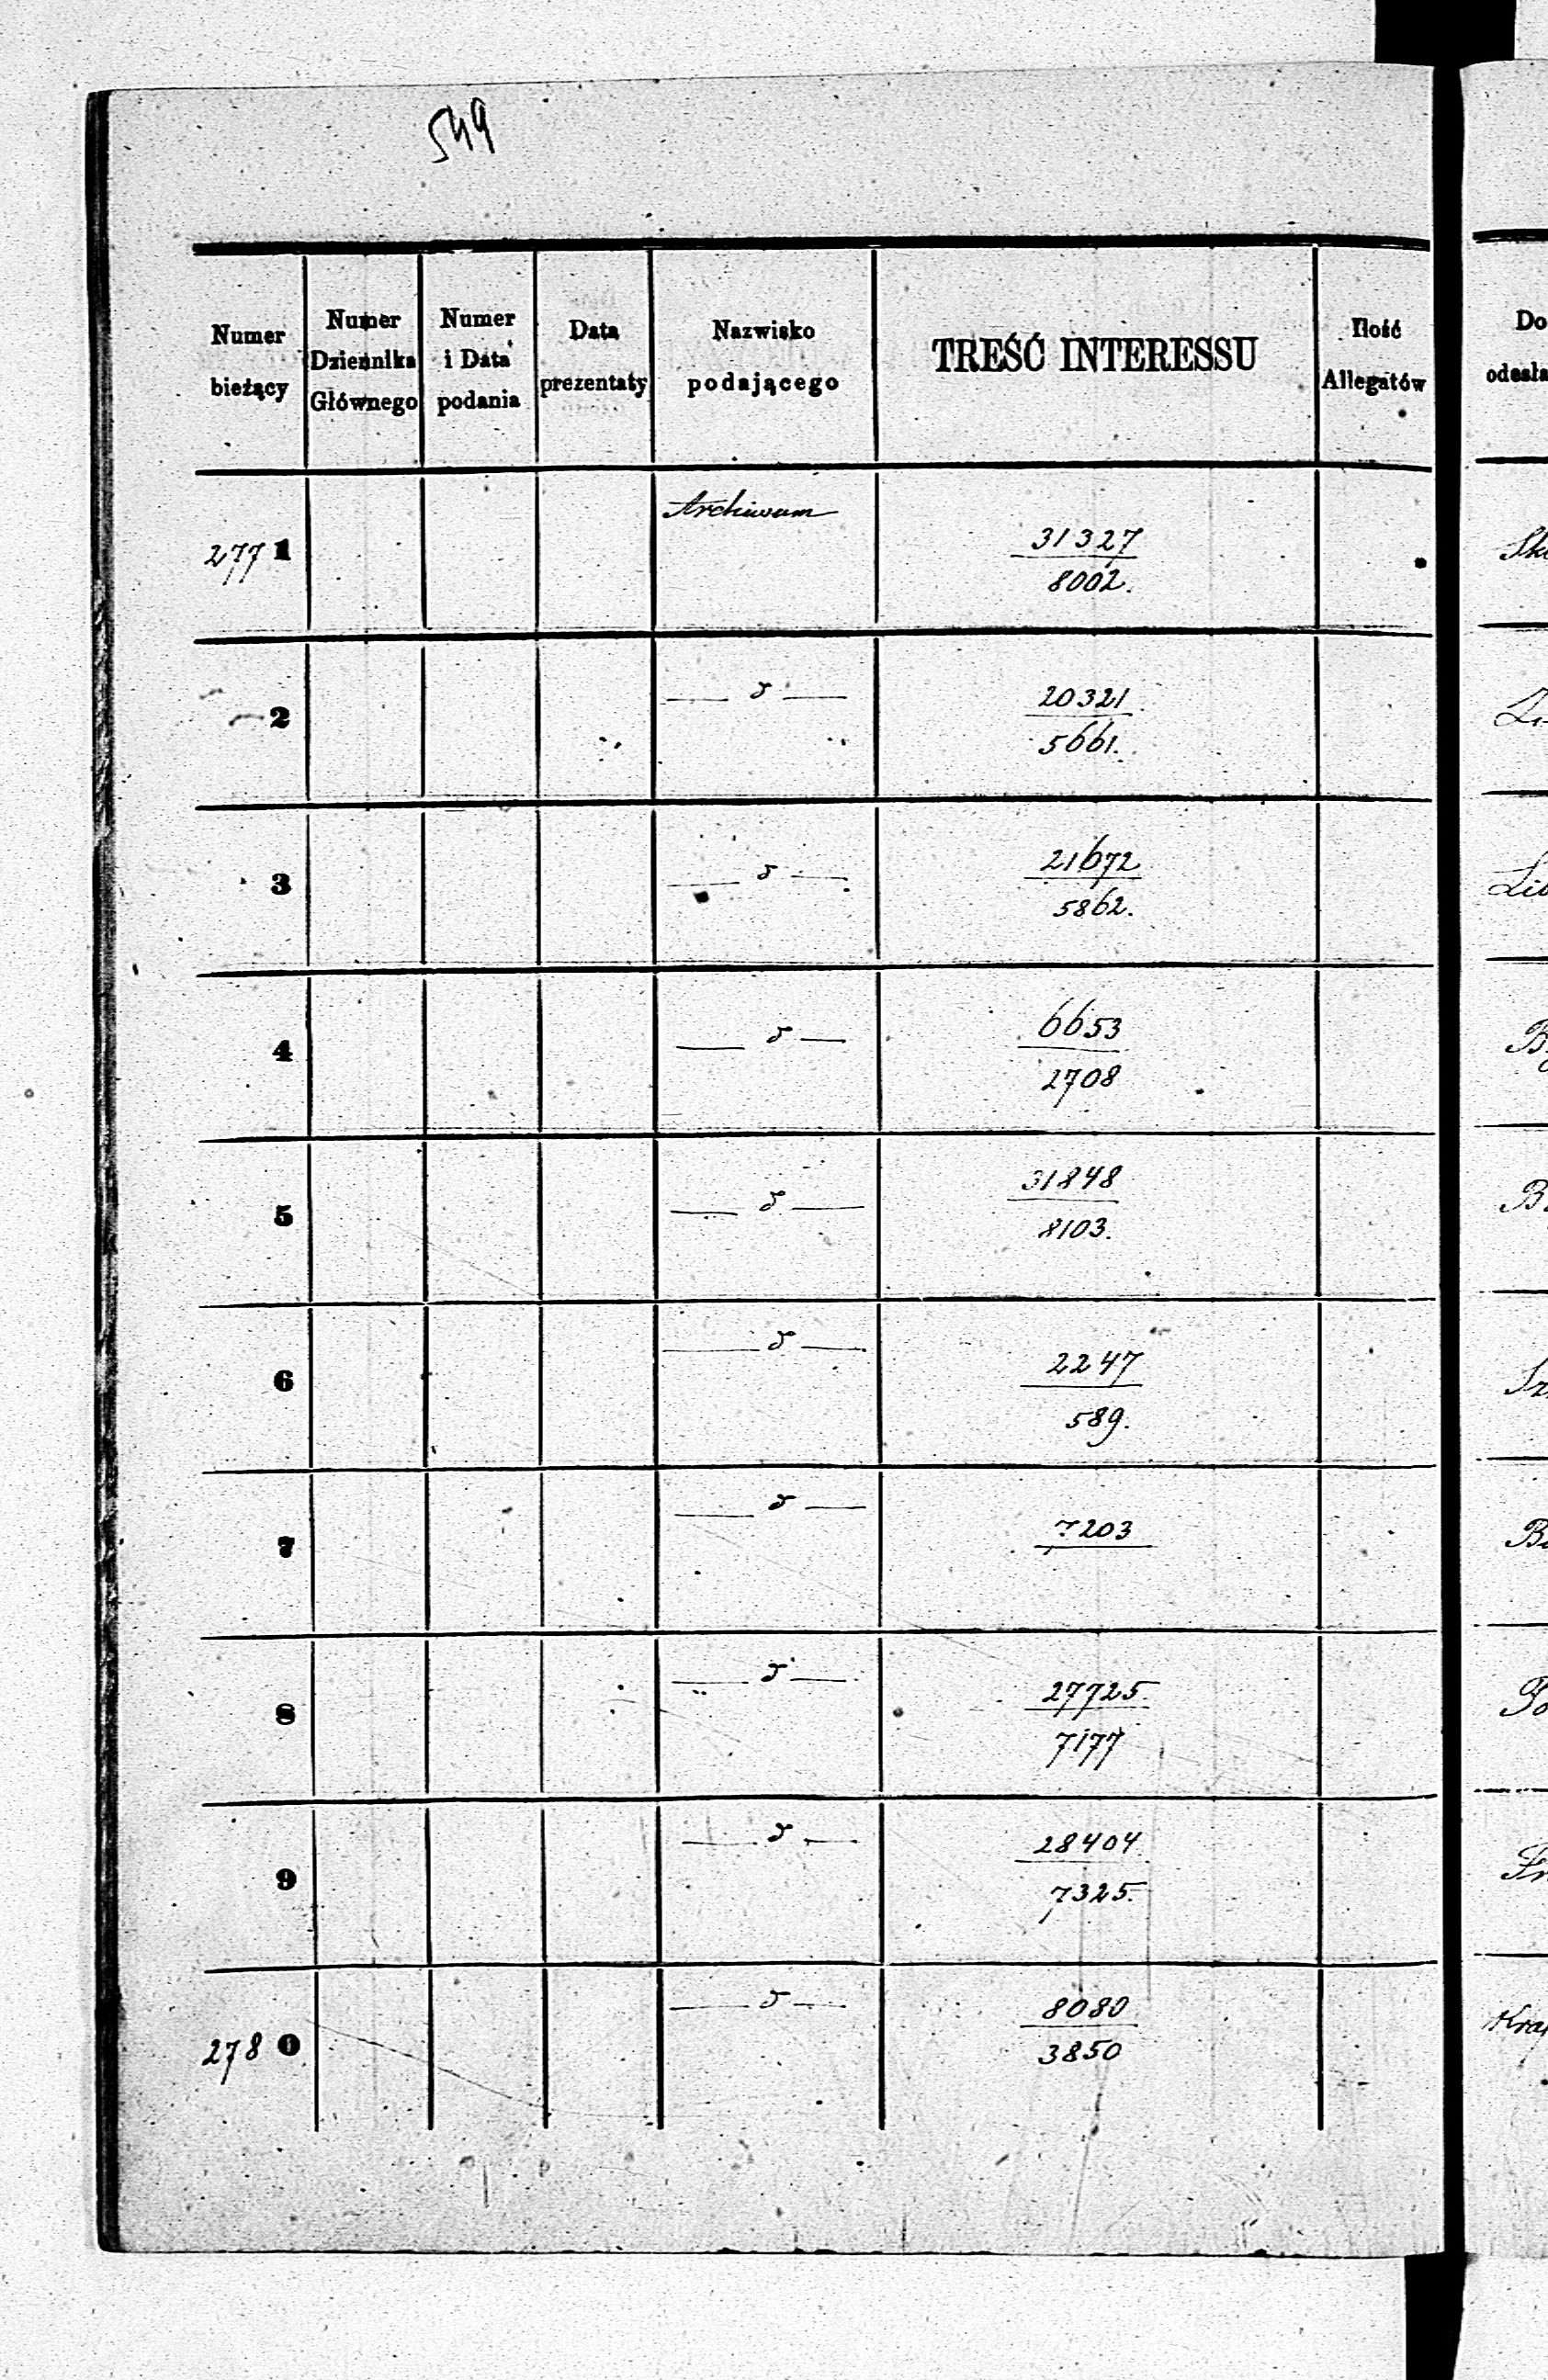 549
Numer bieżący
Numer Dziennika Głównego
Numer i Data podania
Data prezentaty
Nazwisko podającego
TREŚĆ INTERESSU
Ilość Allegatów
2771
Archiwum
31327
8002.
2
— d —
20321
5661.
3
— d —
21672
5862.
4
— d —
6653
2708
5
— d —
31848
8103.
6
— d —
2247
589.
7
— d —
7203
8
— d —
27725
7177
9
— d —
28404
7325.
2780
— d —
8080
3850